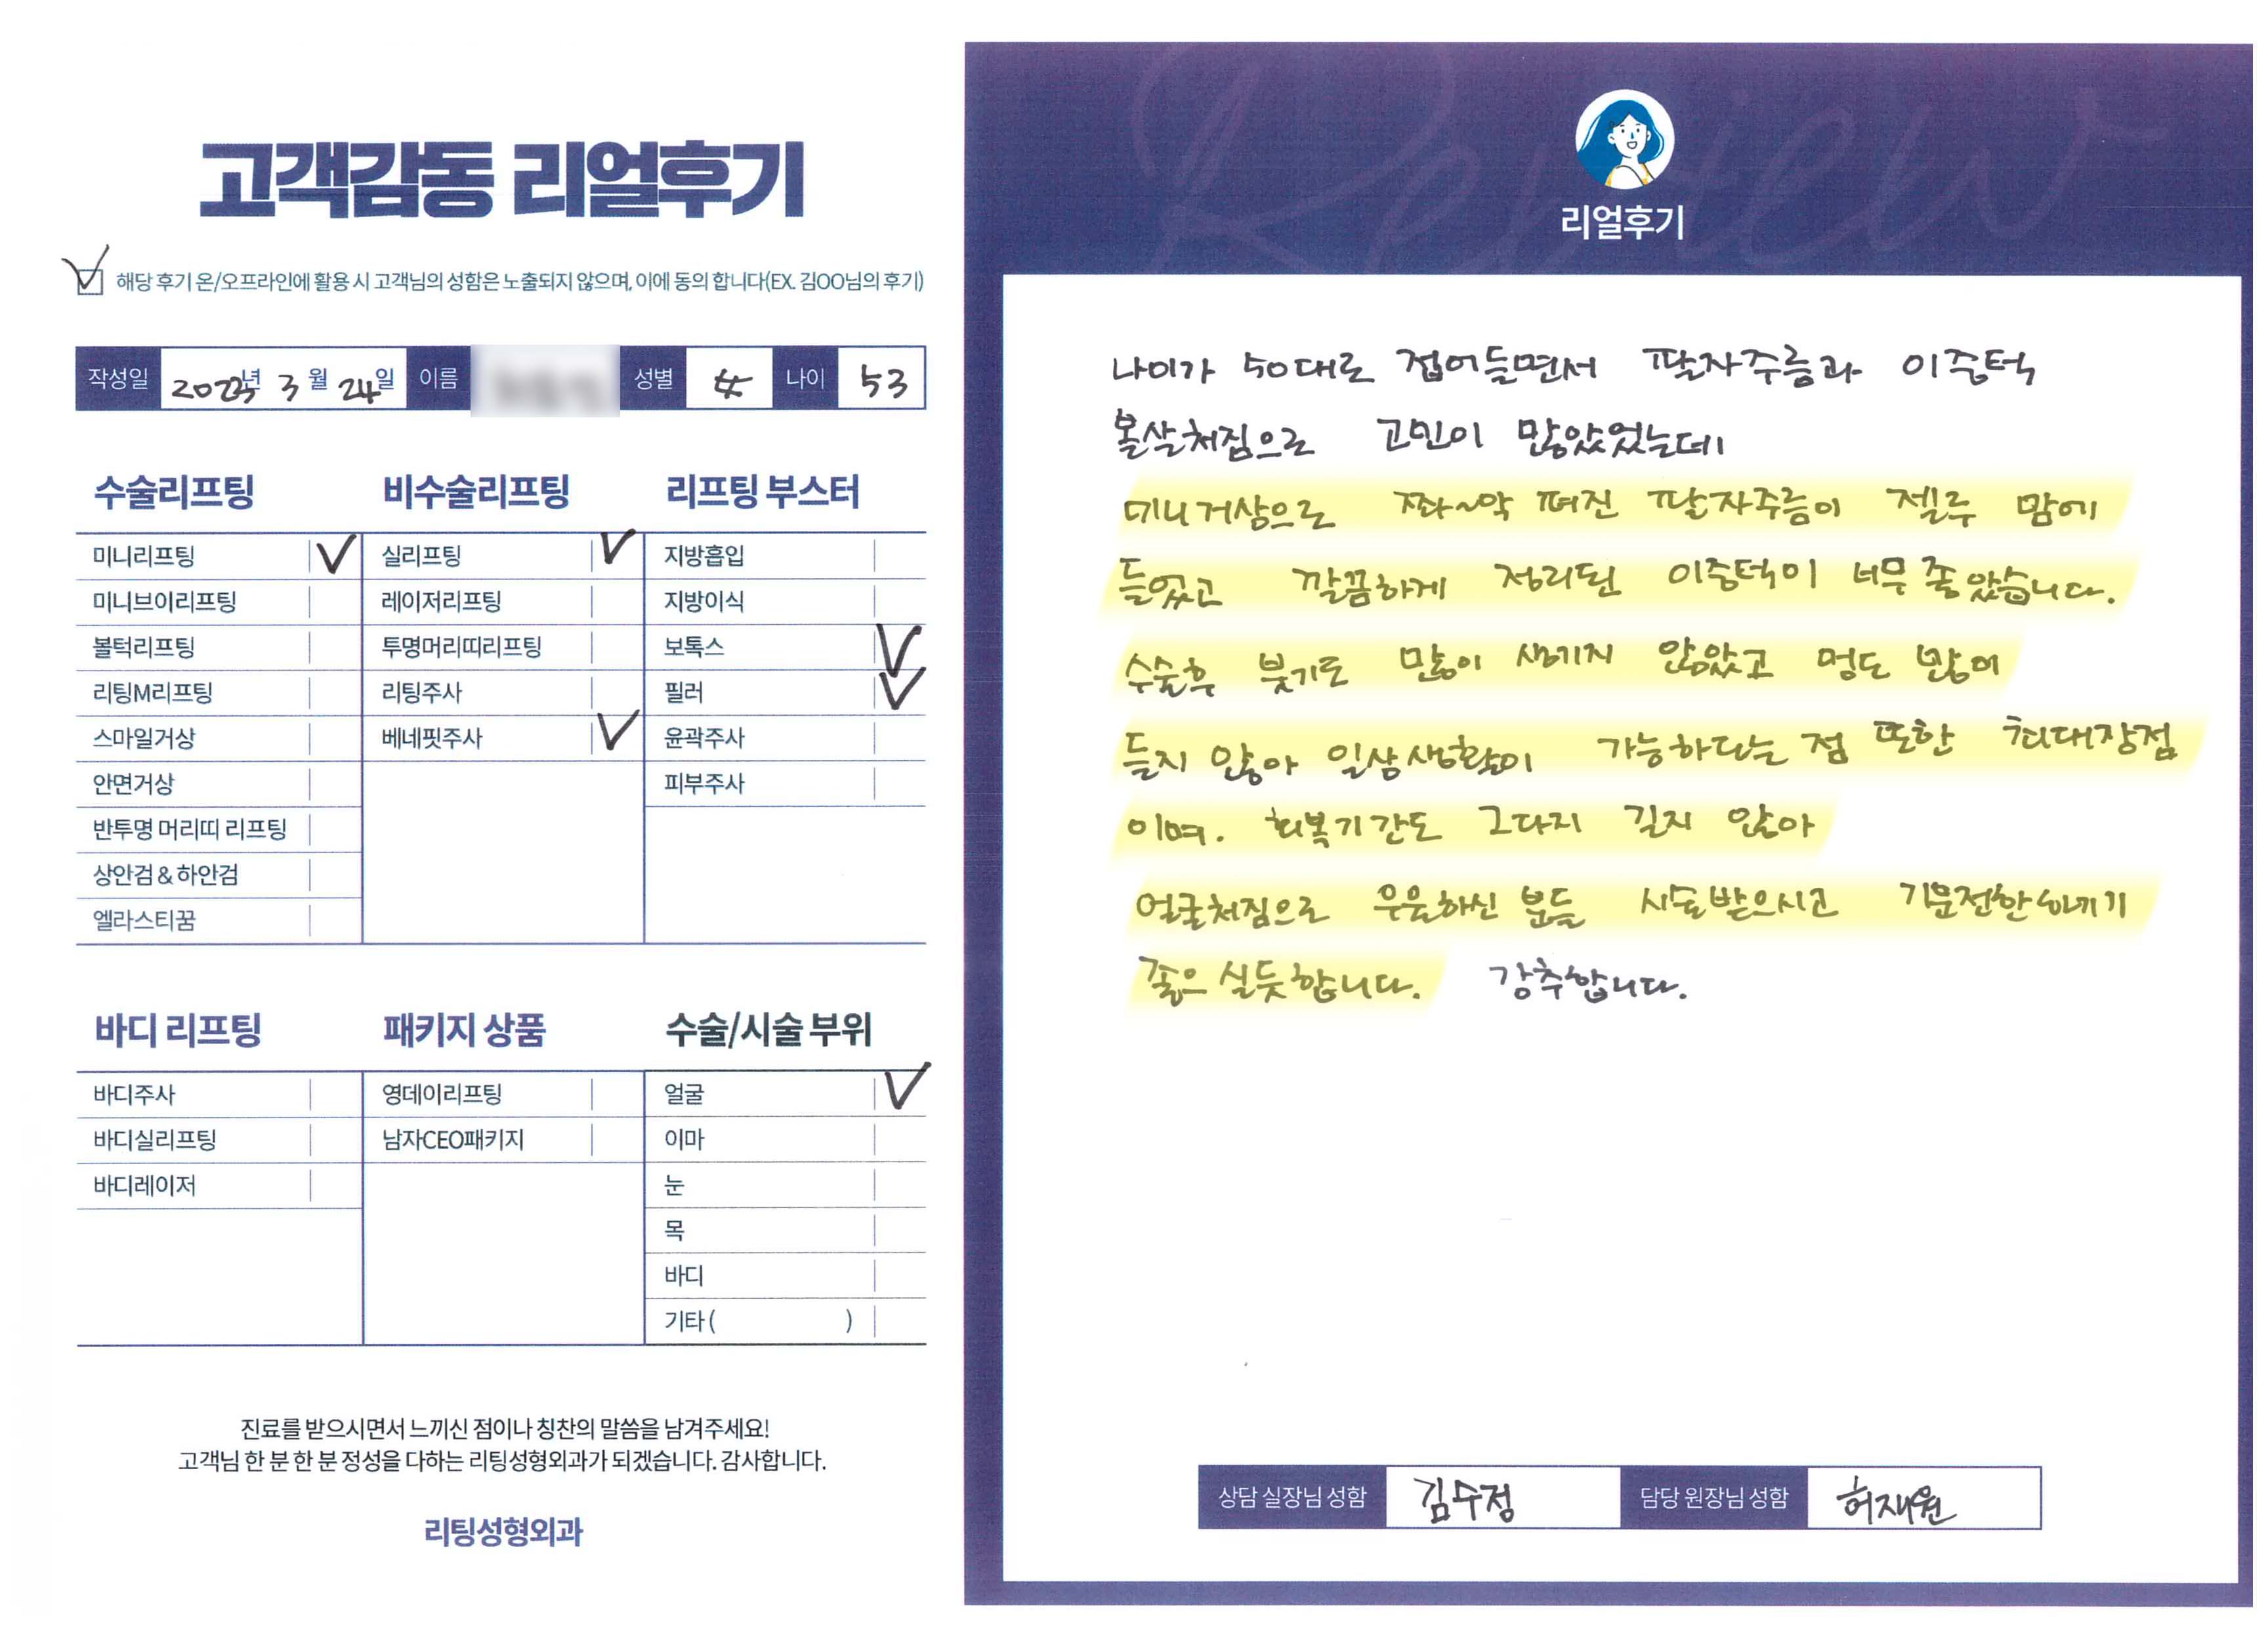 고객감동 리얼후기
해당 후기 온/오프라인에 활용 시 고객님의 성함은 노출되지 않으며, 이에 동의 합니다(EX. 김OO님의 후기)
작성일 2023년 3월 24일 이름 성별 女 나이 53
수술리프팅
미니리프팅
미니브이리프팅
볼턱리프팅
리팅M리프팅
스마일거상
안면거상
반투명 머리띠 리프팅
상안검 & 하안검
엘라스티꿈
비수술리프팅
실리프팅
레이저리프팅
투명머리띠리프팅
리팅주사
베네핏주사
리프팅 부스터
지방흡입
지방이식
보톡스
필러
윤곽주사
피부주사
바디 리프팅
바디주사
바디실리프팅
바디레이저
패키지 상품
영데이리프팅
남자CEO패키지
수술/시술 부위
얼굴
이마
눈
목
바디
기타 ( )
진료를 받으시면서 느끼신 점이나 칭찬의 말씀을 남겨주세요!
고객님 한 분 한 분 정성을 다하는 리팅성형외과가 되겠습니다. 감사합니다.
리팅성형외과
Review
리얼후기
나이가 50대로 접어들면서 팔자주름과 이중턱
볼살처짐으로 고민이 많았었는데
미니거상으로 쫘~악 펴진 팔자주름이 젤루 맘에
들었고 깔끔하게 정리된 이중턱이 너무 좋았습니다.
수술후 붓기도 많이 생기지 않았고 멍도 많이
들지 않아 일상생활이 가능하다는 점 또한 최대장점
이며. 회복기간도 그다지 길지 않아
얼굴처짐으로 우울하신 분들 시술받으시고 기분전환하기
좋으실듯합니다. 강추합니다.
상담 실장님 성함 김수정 담당 원장님 성함 허재원